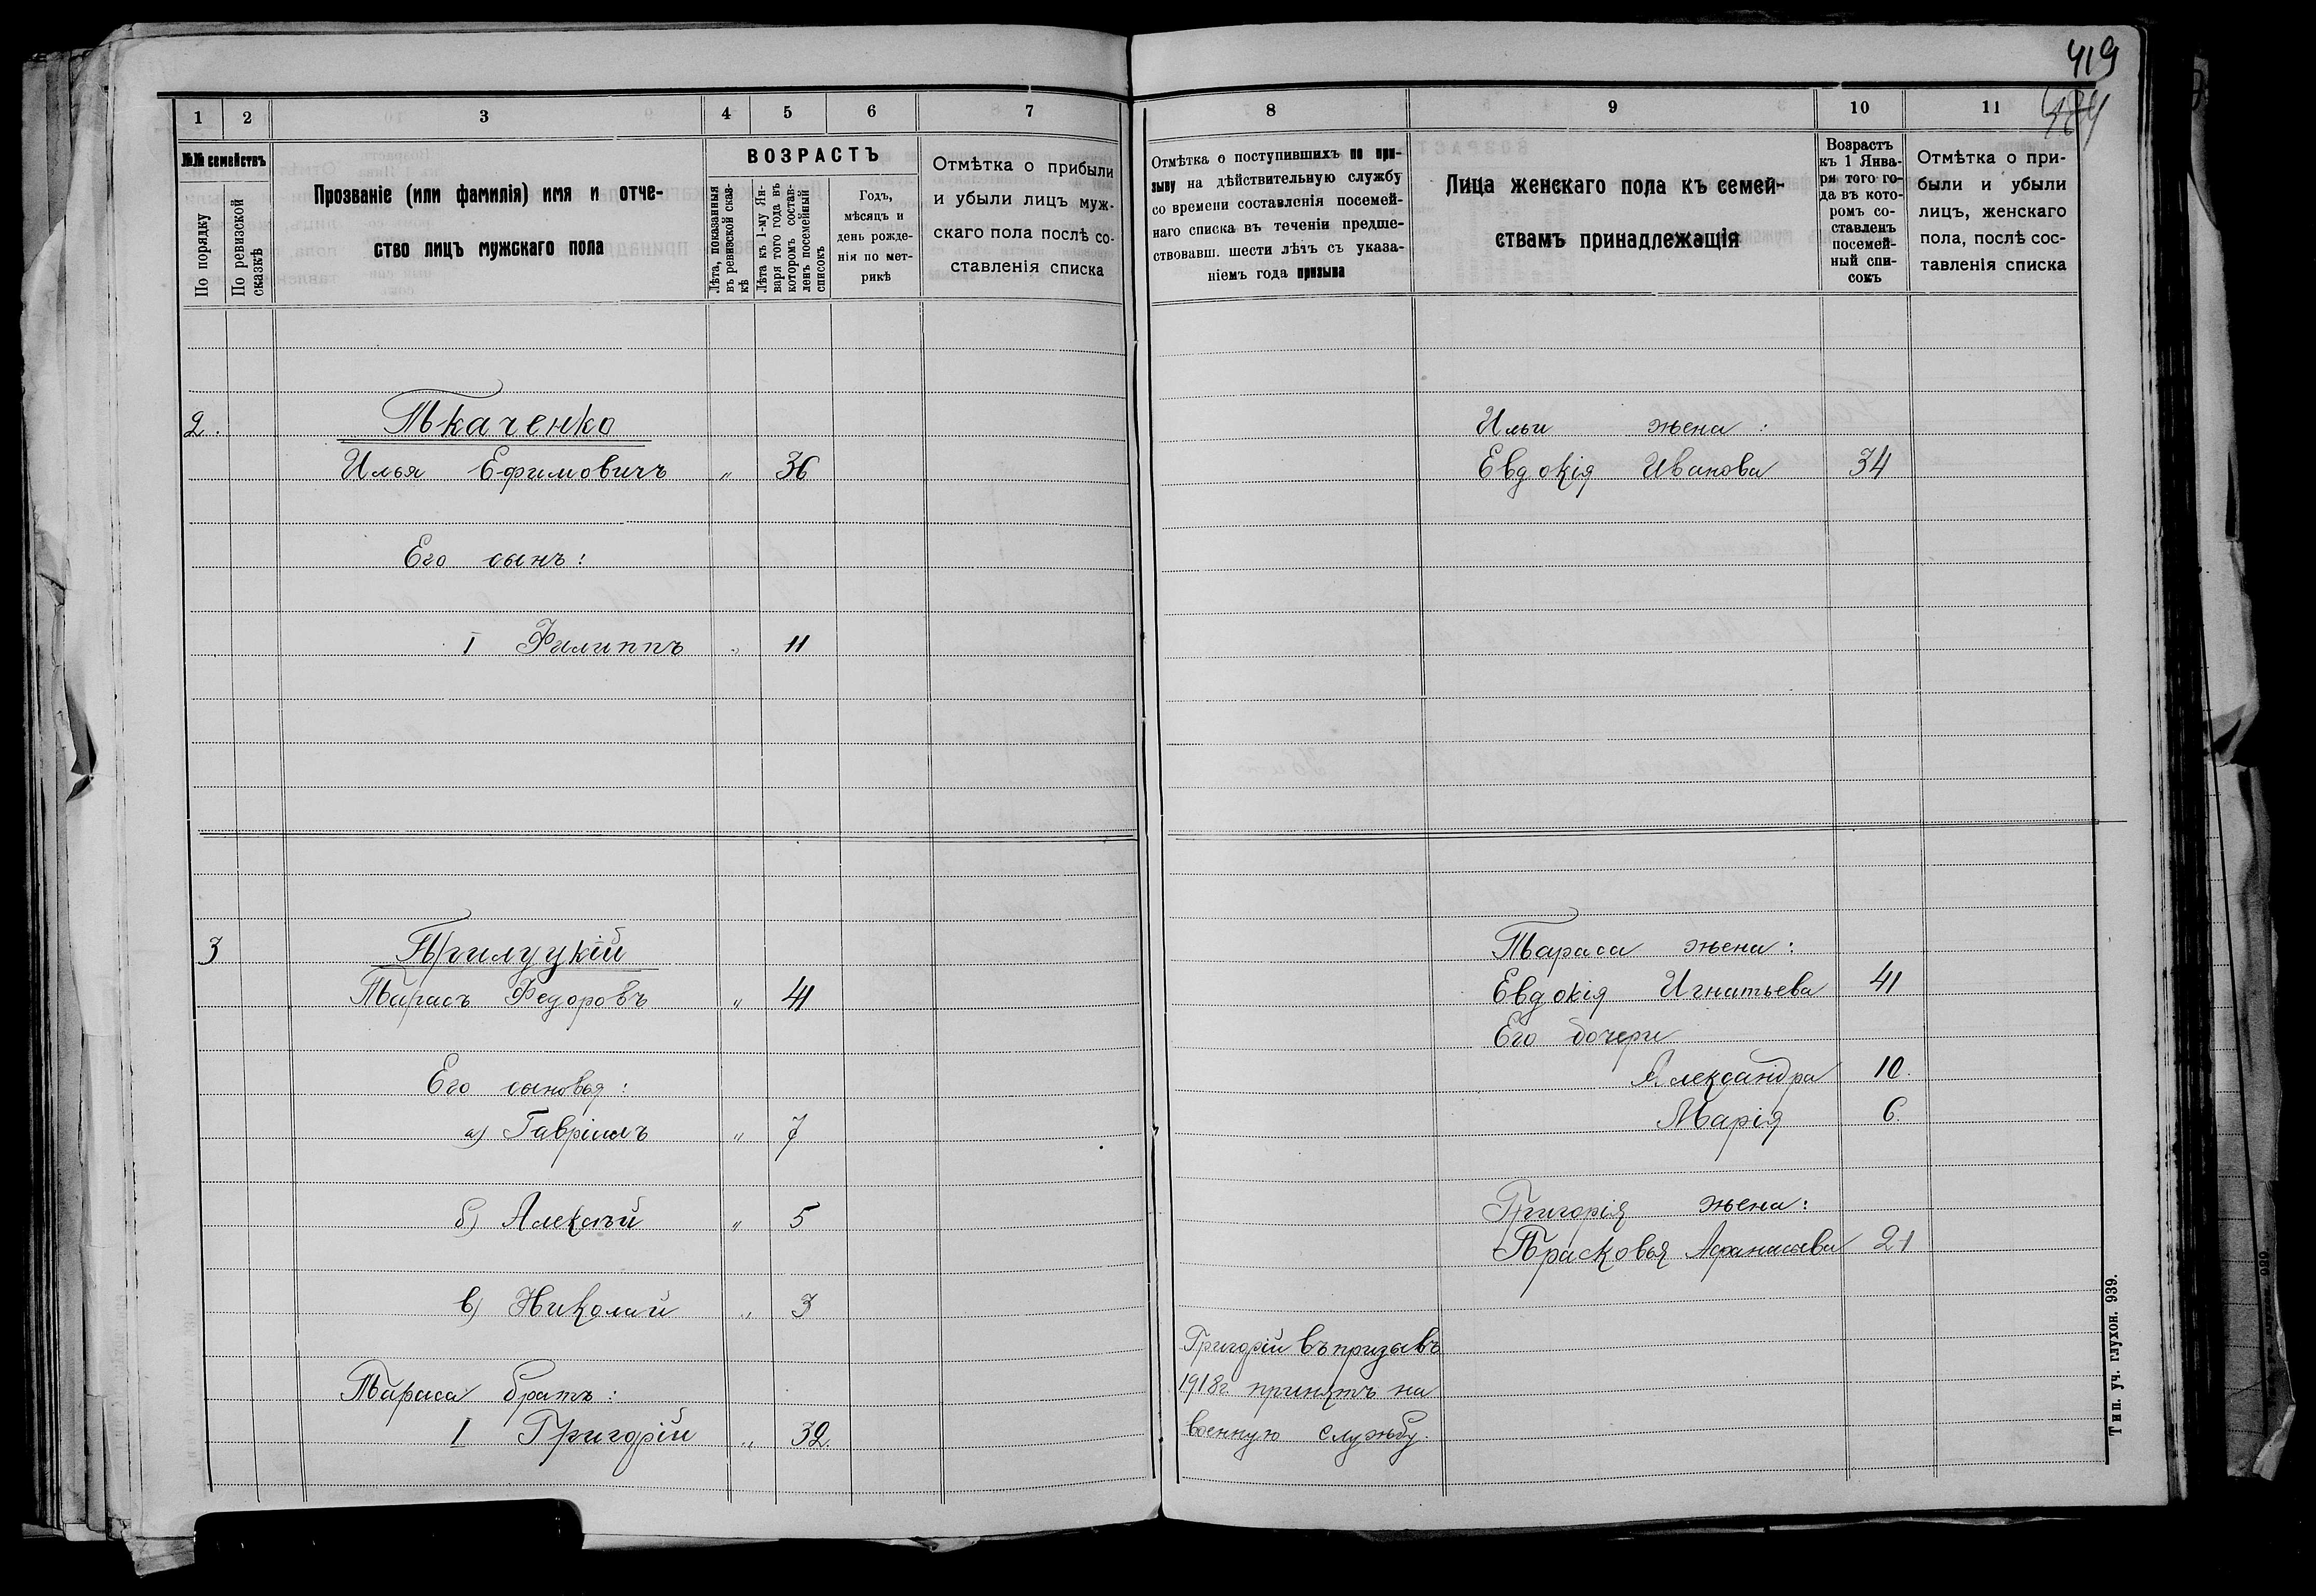 419
384
1 2 3 4 5 6 7
№№ семействъ
По порядку
По ревизской сказкѣ
Прозваніе (или фамилія) имя и отче-
ство лицъ мужскаго пола
ВОЗРАСТЪ
Лѣта, показанныя
въ ревизской сказ-
кѣ
Лѣта къ 1-му Ян-
варя того года въ
которомъ состав-
ленъ посемейный
списокъ
Годъ,
мѣсяцъ и
день рожде-
нія по мет-
рикѣ
Отмѣтка о прибыли
и убыли лицъ муж-
скаго пола послѣ со-
ставленія списка
2. Ткаченко
Илья Ефимовичъ „ 36
Его сынъ:
I Филиппъ „ 11
3 Прилуцкій
Тарасъ Федоровъ „ 41
Его сыновья:
а) Гавріилъ „ 7
б) Алексѣй „ 5
в) Николай „ 3
Тараса братъ:
I Григорій „ 32.
8 9 10 11
Отмѣтка о поступившихъ по при-
зыву на дѣйствительную службу
со времени составленія посемей-
наго списка въ теченіи предше-
ствовавш. шести лѣтъ съ указа-
ніемъ года призыва
Лица женскаго пола къ семей-
ствамъ принадлежащія
Возрастъ
къ 1 Янва-
ря того го-
да въ кото-
ромъ со-
ставленъ
посемей-
ный спи-
сокъ
Отмѣтка о при-
были и убыли
лицъ, женскаго
пола, послѣ сос-
тавленія списка
Ильи жена:
Евдокія Иванова 34
Тараса жена:
Евдокія Игнатьева 41
Его дочери
Александра 10.
Марія 6.
Григорія жена:
Прасковья Афанасьева 21
Григорій въ призывъ
1918г. принятъ на
военную службу.
Тип. уч. глухон. 939.